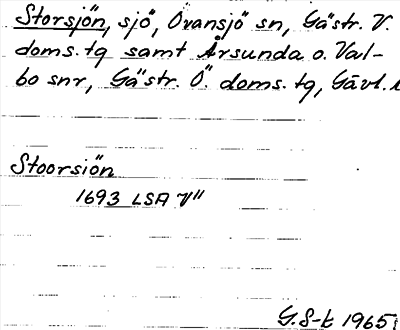 Storsjön, sjö, Ovansjö sn, Gästr. V.
doms. tg samt Årsunda o. Val-
bo snr, Gästr. Ö. doms. tg, Gävl. l
Stoorsiön
1693 LSA V11
G. S-t 1965